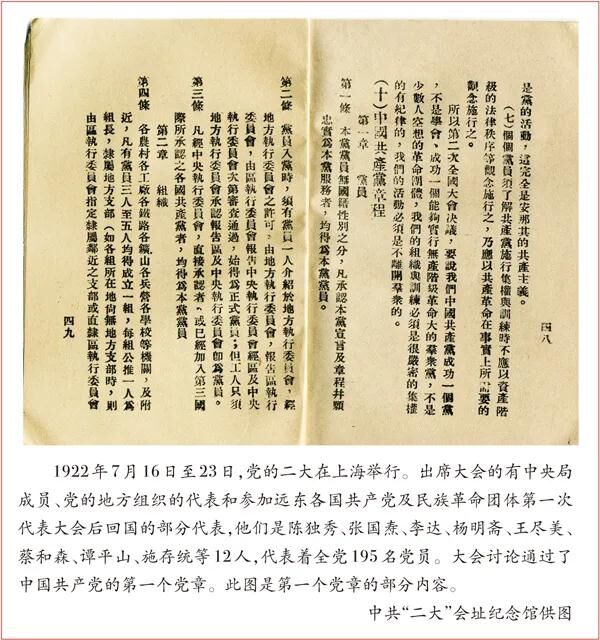 四八
是黨的活動，這完全是安那其的共產主義。
(七)個個黨員須了解共產黨施行集權與訓練時不應以資產階
級的法律秩序等觀念施行之，乃應以共產革命在事實上所需要的
觀念施行之。
所以第二次全國大會決議，要說我們中國共產黨成功一個黨
，不是學會、成功一個能夠實行無產階級革命大的羣衆黨，不是
少數人空想的革命團體，我們的組織與訓練必須是很嚴密的集權
的有紀律的，我們的活動必須是不離開羣衆的。
(十)中國共產黨章程
第一章 黨員
第一條 本黨黨員無國籍性別之分，凡承認本黨宣言及章程幷願
忠實爲本黨服務者，均得爲本黨黨員。
第二條 黨員入黨時，須有黨員一人介紹於地方執行委員會，經
地方執行委員會之許可，由地方執行委員會，報告區執行
委員會，由區執行委員會報告中央執行委員會經區及中央
執行委員會次第審查通過，始得爲正式黨員；但工人只須
地方執行委員會承認報告區及中央執行委員會卽爲黨員。
第三條 凡經中央執行委員會，直接承認者，或已經加入第三國
際所承認之各國共產黨者，均得爲本黨黨員
第二章 組織
第四條 各農村各工廠各鐵路各鑛山各兵營各學校等機關，及附
近，凡有黨員三人至五人均得成立一組，每組公推一人爲
組長，隸屬地方支部（如各組所在地尙無地方支部時，則
由區執行委員會指定隸屬鄰近之支部或直隸區執行委員會
四九
1922年7月16日至23日，党的二大在上海举行。出席大会的有中央局
成员、党的地方组织的代表和参加远东各国共产党及民族革命团体第一次
代表大会后回国的部分代表，他们是陈独秀、张国焘、李达、杨明斋、王尽美、
蔡和森、谭平山、施存统等12人，代表着全党195名党员。大会讨论通过了
中国共产党的第一个党章。此图是第一个党章的部分内容。
中共“二大”会址纪念馆供图